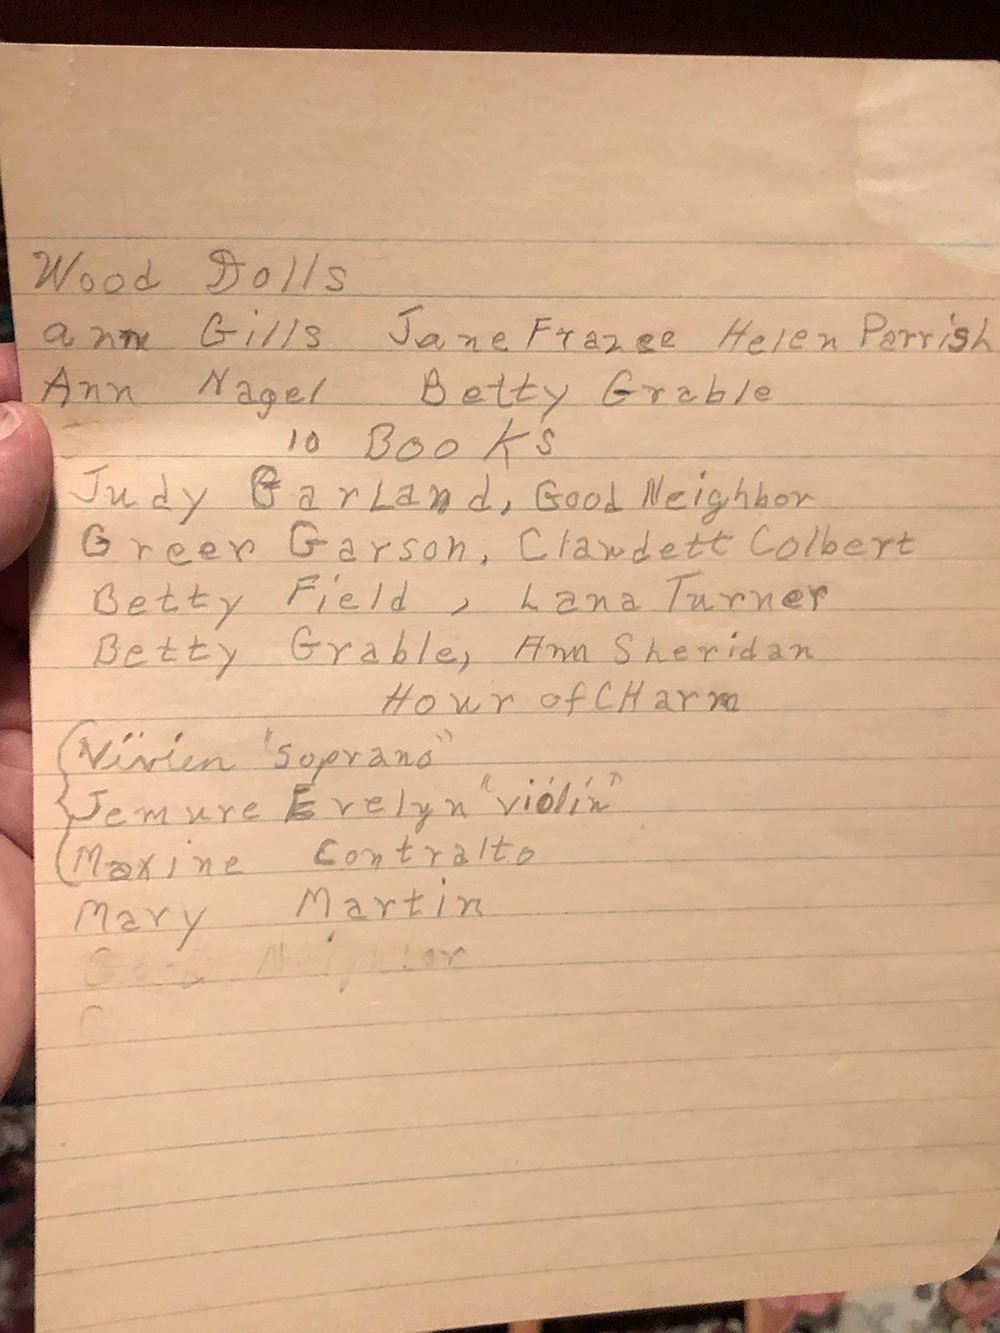 Wood Dolls
ann Gills Jane Frazee Helen Parrish
Ann Nagel Betty Grable
10 BooKs
Judy GarLand, Good Neighbor
Greer Garson, Clawdett Colbert
Betty Field, Lana Turner
Betty Grable, Ann Sheridan
Hour of CHarm
Vivien "soprano"
Jemure Evelyn "violin"
Maxine Contralto
Mary Martin
Good Neighbor